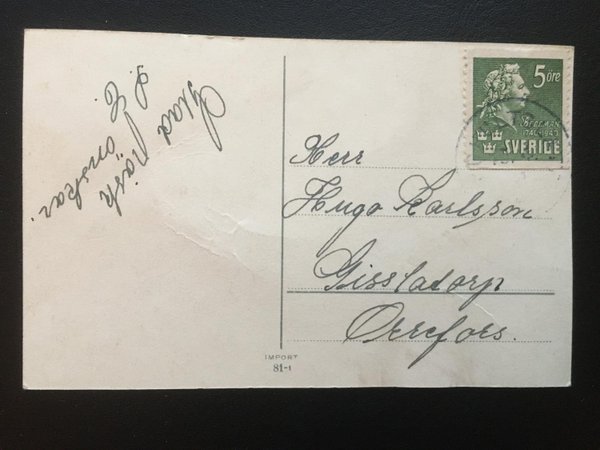 Glad Påsk
önskar
S. E.
5 öre
BELLMAN
1740-1940
SVERIGE
Herr
Hugo Karlsson
Gisslatorp
Orrefors.
IMPORT
81-1